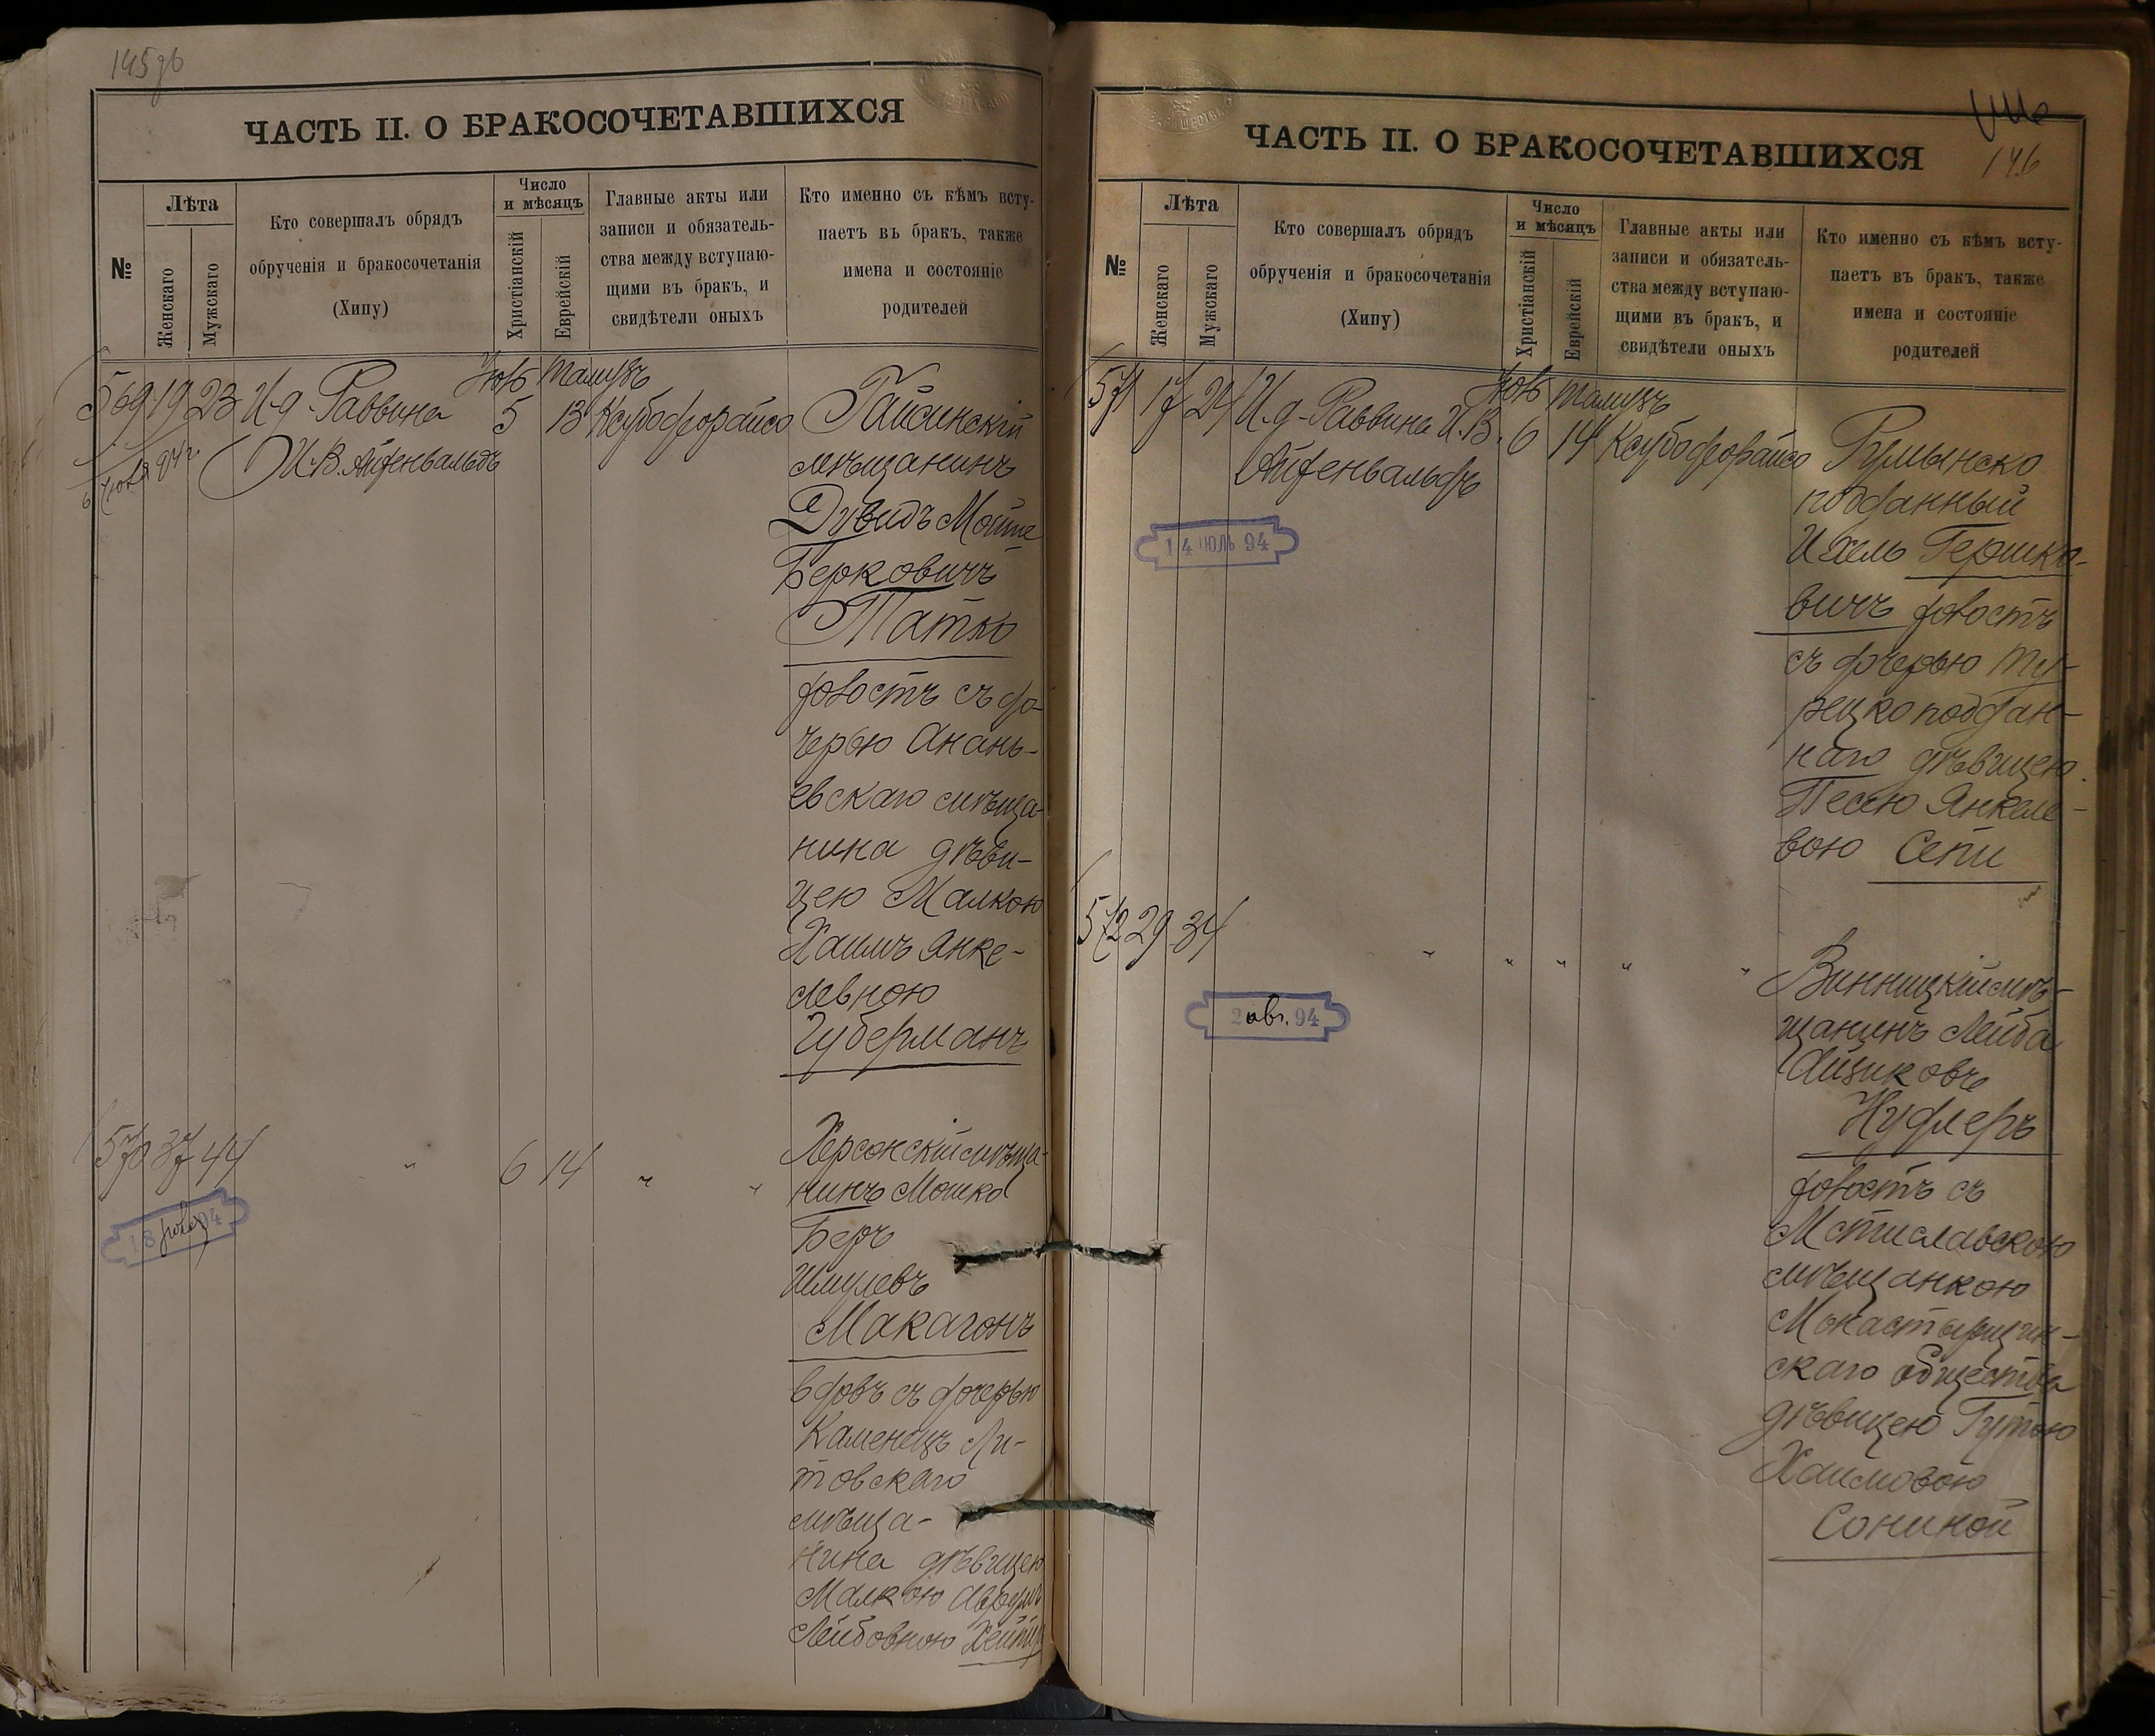 145об
ЧАСТЬ II. О БРАКОСОЧЕТАВШИХСЯ
№
Лѣта
Женскаго
Мужскаго
Кто совершалъ обрядъ
обрученія и бракосочетанія
(Хипу)
Число
и мѣсяцъ
Христіанскій
Еврейскій
Главные акты или
записи и обязатель-
ства между вступаю-
щими въ бракъ, и
свидѣтели оныхъ
Кто именно съ кѣмъ всту-
паетъ въ бракъ, также
имена и состояніе
родителей
Іюль Тамузъ
569 19 23 И.д. Раввина 5 13 Ксубо драйсо
И.В. Айзенвальдъ
Гайсинскій
мѣщанинъ
Дувидъ Мойше
Берковичъ
Татко
холостъ съ до-
черью Анань-
евскаго мѣща-
нина дѣви-
цею Малкою
Янке-
левною
Губерманъ
570 37 44 " 6 14 " "
18 94
Херсонскій мѣща-
нинъ Мошко
Беръ
Шмулевъ
Макагонъ
вдовъ съ дочерью
Каменецъ Ли-
товскаго
мѣща-
нина дѣвицею
Малкою
Лейбовною
ЧАСТЬ II. О БРАКОСОЧЕТАВШИХСЯ
146
№
Лѣта
Женскаго
Мужскаго
Кто совершалъ обрядъ
обрученія и бракосочетанія
(Хипу)
Число
и мѣсяцъ
Христіанскій
Еврейскій
Главные акты или
записи и обязатель-
ства между вступаю-
щими въ бракъ, и
свидѣтели оныхъ
Кто именно съ кѣмъ всту-
паетъ въ бракъ, также
имена и состояніе
родителей
Іюль Тамузъ
571 17 24 И.д. Раввина И.В. 6 14 Ксубо драйсо
Айзенвальдъ
14 ІЮЛЬ 94
Румынско
подданный
Ихель Гершко-
вичъ холостъ
съ дочерью Ту-
рецко поддан-
наго дѣвицею
Песею Янкеле-
вою Сепи
572 29 34 " " " " "
2 авг. 94
Винницкій мѣ-
щанинъ Лейба
Айзиковъ
Нуфлеръ
холостъ съ
Мстиславскою
мѣщанкою
Монастырщин-
скаго общества
дѣвицею Гутою
Хаимовою
Сониной